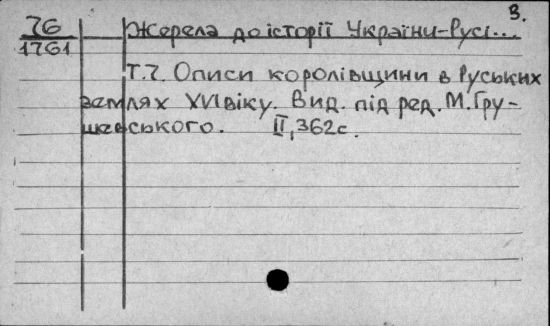 3.
76
1761
Жерела до історії України-Русі...
Т.7. Описи королівщини в Руських
землях XVI віку. Вид. під ред. М. Гру-
шевського. II, 362 с.